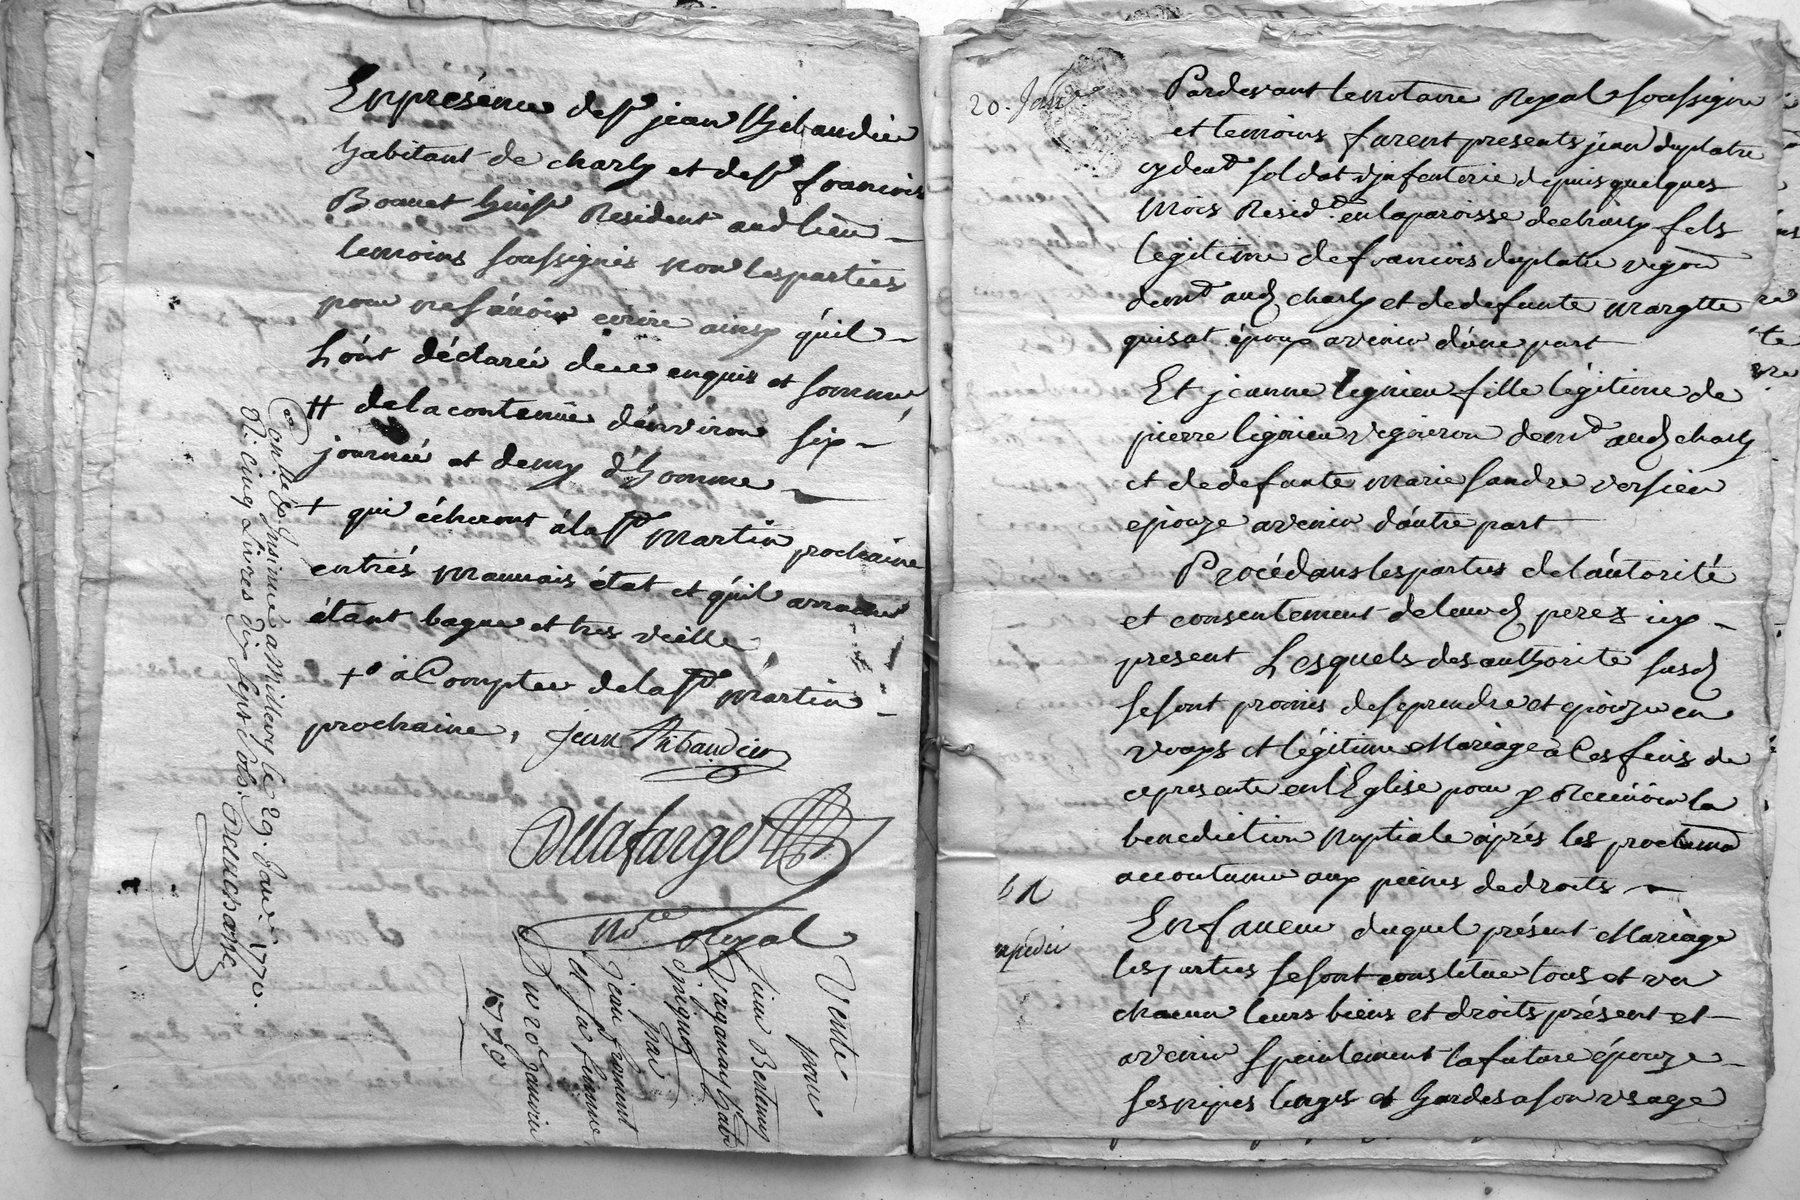 En présence de Sr jean Thibaudier
habitant de charly et de Sr francois
Bonnet huissr Resident aud lieu
temoins soussignés non les parties
pour ne scavoir ecrire ainsy qu'il
hónt déclaréé de ce enquis et sommé
# de la contenüe d'environ six
journéé et demy d'homme
+ qui écheront à la St martin prochaine
en trés mauvais état et qu'il
étant et tres vieille
+o à Compter de la St martin
prochaine, jean Thibaudier
Delafarge
Nre Royal
Con.lé et Insinué a Millery le 29. Janv. 1770.
R. cinq Livres dix sept sols. Deuchasne
Vente
pour
par
jean
et sa femme
Du 20e Janvier
1770
20. Janv
Pardevant le notaire Royal soussigné
et temoins furent presents jean duplatre
cy devt soldat d'infenterie depuis quelques
mois Residt en la paroisse de charly fils
legitime de francois duplatre vigon
demt aud charly et de defunte margtte
quisat époux avenir d'úne part
Et jeanne legrieu fille légitime de
pierre legrieu vigneron demt aud charly
et de defunte marie sandre versieu
epouze avenir d'áutre part
Procédans les parties de l'áutorité
et consentement de leurd perez icy
present Lesquels des authorité susd
se sont promis de se prendre et epouzer en
vrays et légitime Mariage à Ces fins de
ce presenter en l'Eglise pour y Recevoir la
benediction nuptiale áprés les proclama
accoutumé aux peines de droits
bA
expédié
En faveur duquel présent Mariage
les parties se sont constitué tous et un
chacun leurs biens et droits présent et
avenir specialement la future épouze
ses nipes linges et hardes a son usage